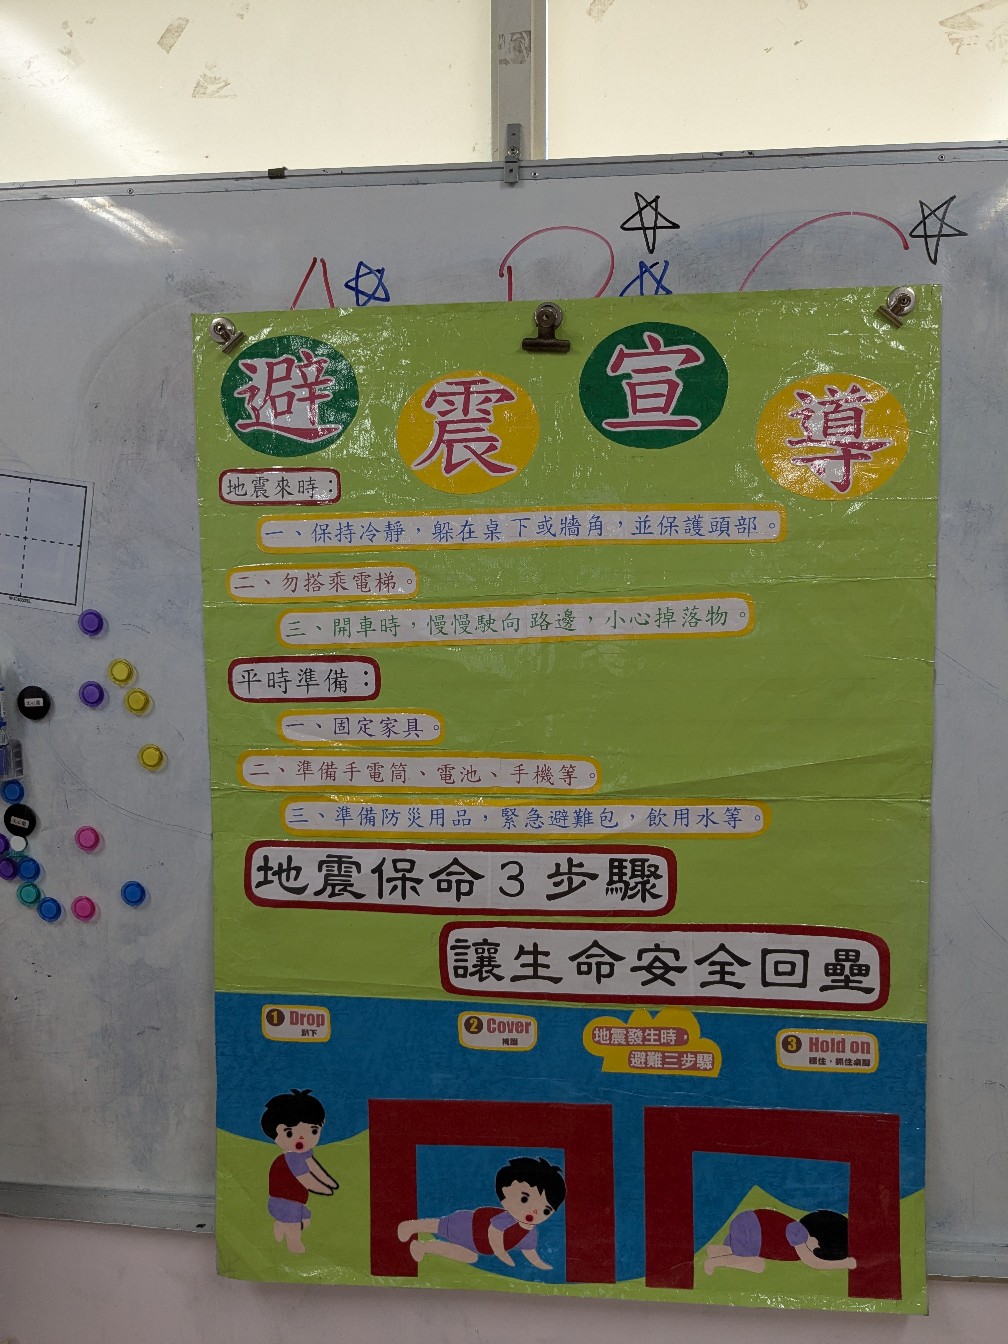 避震宣導
地震來時：
一、保持冷靜，躲在桌下或牆角，並保護頭部。
二、勿搭乘電梯。
三、開車時，慢慢駛向路邊，小心掉落物。
平時準備：
一、固定家具。
二、準備手電筒、電池、手機等。
三、準備防災用品，緊急避難包，飲用水等。
地震保命3步驟
讓生命安全回壘
1 Drop
趴下
2 Cover
掩護
地震發生時，
避難三步驟
3 Hold on
穩住，抓住桌腳